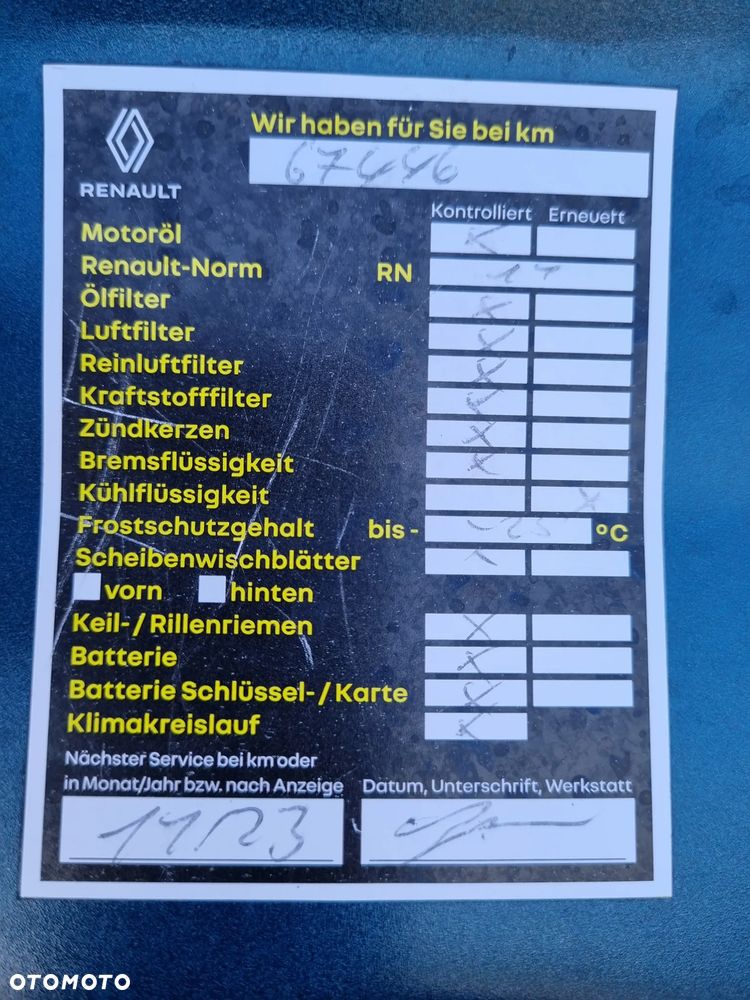 Wir haben für Sie bei km
67446
RENAULT
Kontrolliert Erneuert
Motoröl
Renault-Norm RN
Ölfilter X
Luftfilter X
Reinluftfilter X
Kraftstofffilter X
Zündkerzen X
Bremsflüssigkeit X
Kühlflüssigkeit X
Frostschutzgehalt bis - 25 °C
Scheibenwischblätter
vorn hinten
Keil- / Rillenriemen X
Batterie X
Batterie Schlüssel- / Karte X
Klimakreislauf X
Nächster Service bei km oder
in Monat/Jahr bzw. nach Anzeige Datum, Unterschrift, Werkstatt
OTOMOTO